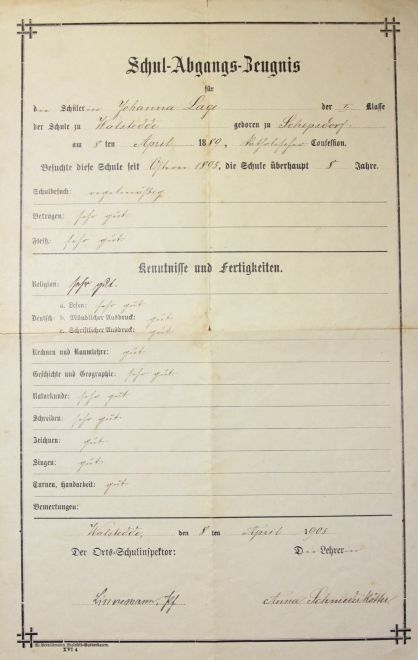 Schul-Abgangs-Zeugnis
für
die Schülerin Johanna Lage der I. Klasse
der Schule zu Walstedde geboren zu Schepsdorf
am 8 ten April 1889, katholischer Confession.
Besuchte diese Schule seit Ostern 1895, die Schule überhaupt 8 Jahre.
Schulbesuch: regelmäßig
Betragen: sehr gut
Fleiß: sehr gut
Kenntnisse und Fertigkeiten.
Religion: sehr gut.
a. Lesen: sehr gut
Deutsch: b. Mündlicher Ausdruck: gut
c. Schriftlicher Ausdruck: gut
Rechnen und Raumlehre: gut
Geschichte und Geographie: sehr gut
Naturkunde: sehr gut
Schreiben: sehr gut
Zeichnen: gut
Singen: gut
Turnen, Handarbeit: gut
Bemerkungen:
Walstedde, den 8 ten April 1903
Der Orts-Schulinspektor: Die Lehrerin
Linnemann, Pf Anna
XVI 4